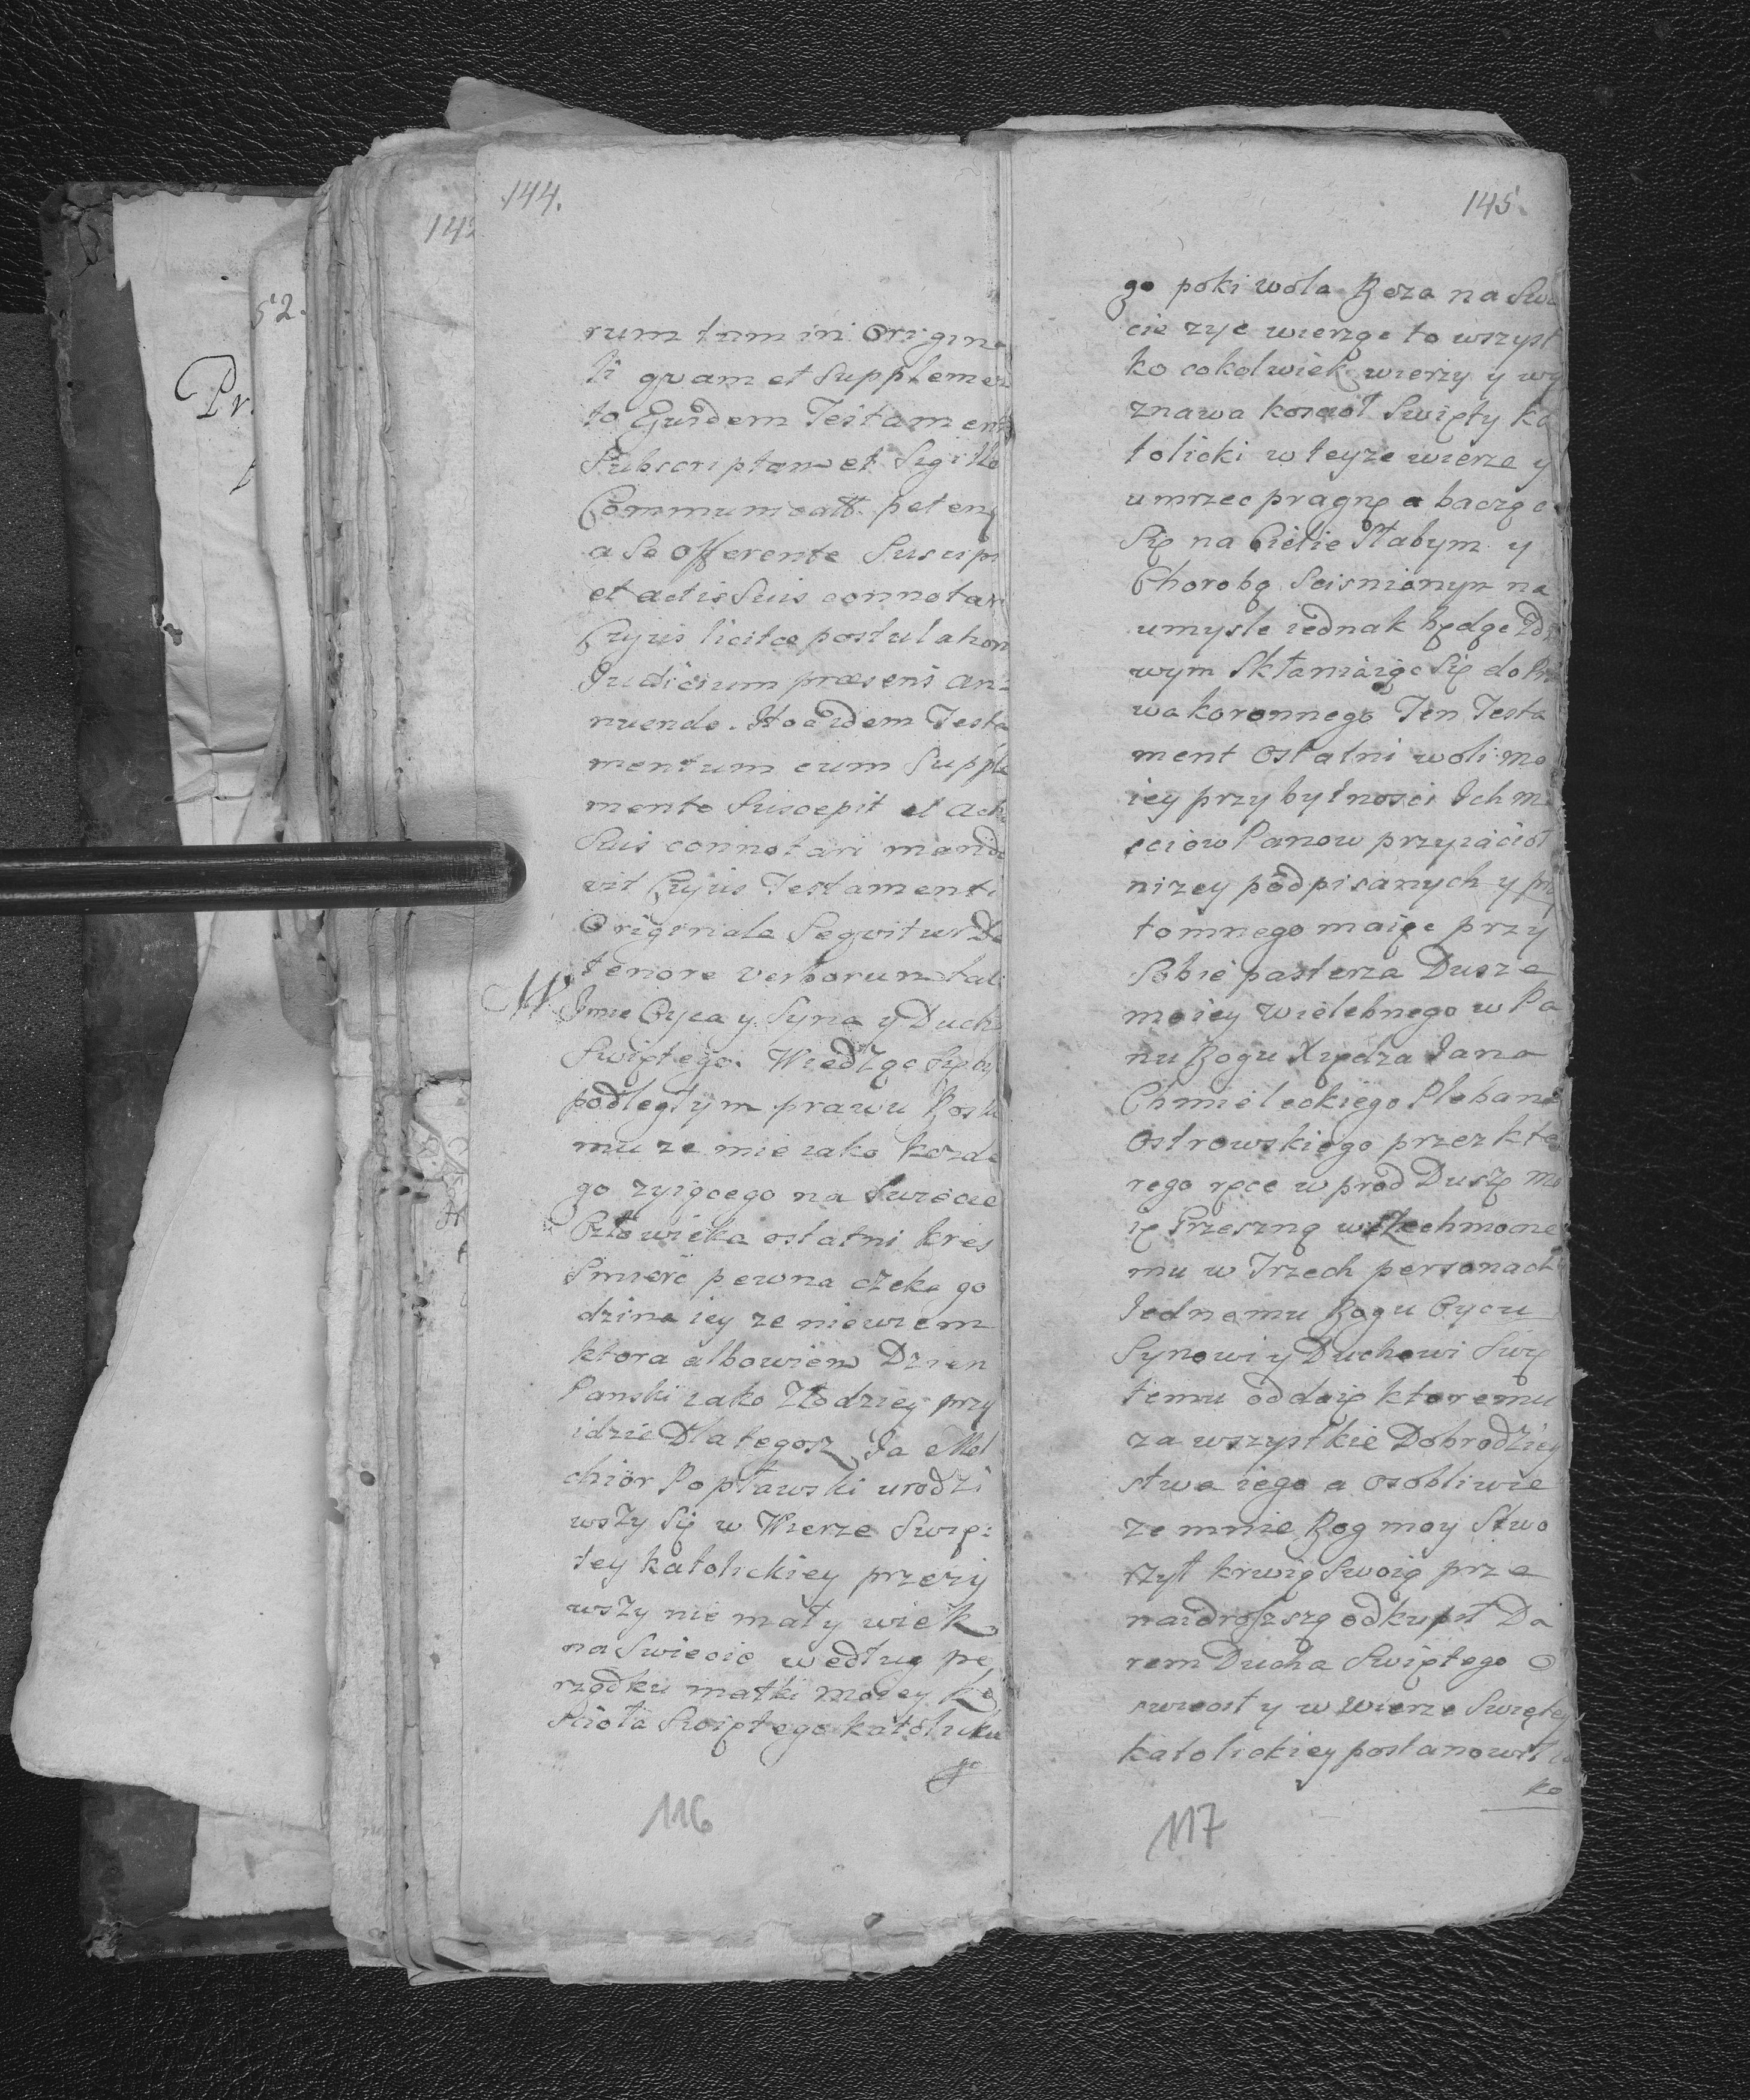 142
52.
Pr.
144.
rum tum in Origina
li qvam et Supplemen
to Ejusdem Testamenti
Subscriptam et Sigillo
Communicatt. petens
a Se Offerente Suscipi
et actis Suis connotari
Cujus licitæ postulationi
Judicium præsens an-
nuendo. Hocidem Testa
mentum cum Supple
mento Suscepit et Actis
Suis connotari manda
vit Cujus Testamenti
Originale Seqvitur De
tenore verborum tali
W Imie Oyca y Syna y Ducha
Swiętego. Wiedząc Się być
podległym prawu Bosku
mu ze mie iako kozde
go zyiącego na Swiecie
Człowieka ostatni kres
Smierc pewna czeka go
dzina iey ze niewiem
ktora albowiem Dzien
Panski iako Złodziey przy
idzie Dlategosz Ja Mel
chior Popławski urodzi
wszy Się w Wierze Swię:
tey katolickiey przezy
wszy nie mały wiek
na Swiecie według po
rządku matki moiey ko
scioła Swiętego katolicku
go
116
145.
go poki wola Boza na Swie
cie zyc wierzge to wszyst
ko cokolwiek wierzy y wy
znawa kosciół Swięty ka
tolicki w teyze wierze y
umrzec pragnę a bacząc
Się na Cielie Słabym y
Chorobą Scisnionym na
umysle iednak będąc Zdro
wym Skłaniaiąc Się do Pra
wa koronnego Ten Testa
ment Ostatni woli mo
iey przy bytnosci Ich m
sciow Panow przyiacioł
nizey podpisanych y przy
tomnego maiąc przy
Sobie pasterza Dusze
moiey Wielebnego w Pa
nu Bogu Xiędza Jana
Chmieleckiego Plebana
Ostrowskiego przez kto
rego ręce w prod Duszę mo
ię Grzeszną wszechmocne
mu w Trzech personach
Jednemu Bogu Oycu
Synowi y Duchowi Swię
temu oddaię ktoremu
za wszystkie Dobrodziey
stwa iego a osobliwie
ze mnie Bog moy Stwo
rzył krwią Swoią prze
naidroszszą odkupił Da
rem Ducha Swiętego O
swiecił y w wierze Swiętey
katolickiey postanowił ia
ko
117